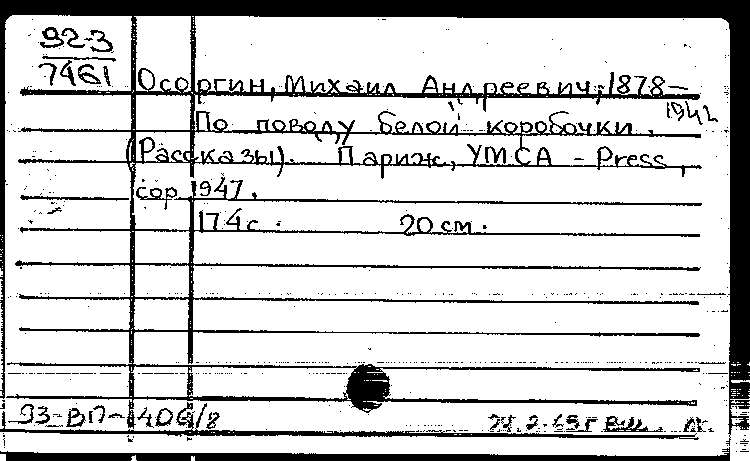 92-3
7461
Осоргин, Михаил Андреевич, 1878-
1942
По поводу белой коробочки.
(Рассказы). Париж, YMCA - Press,
cop 1947.
174с. 20 см.
93-ВП-406/8